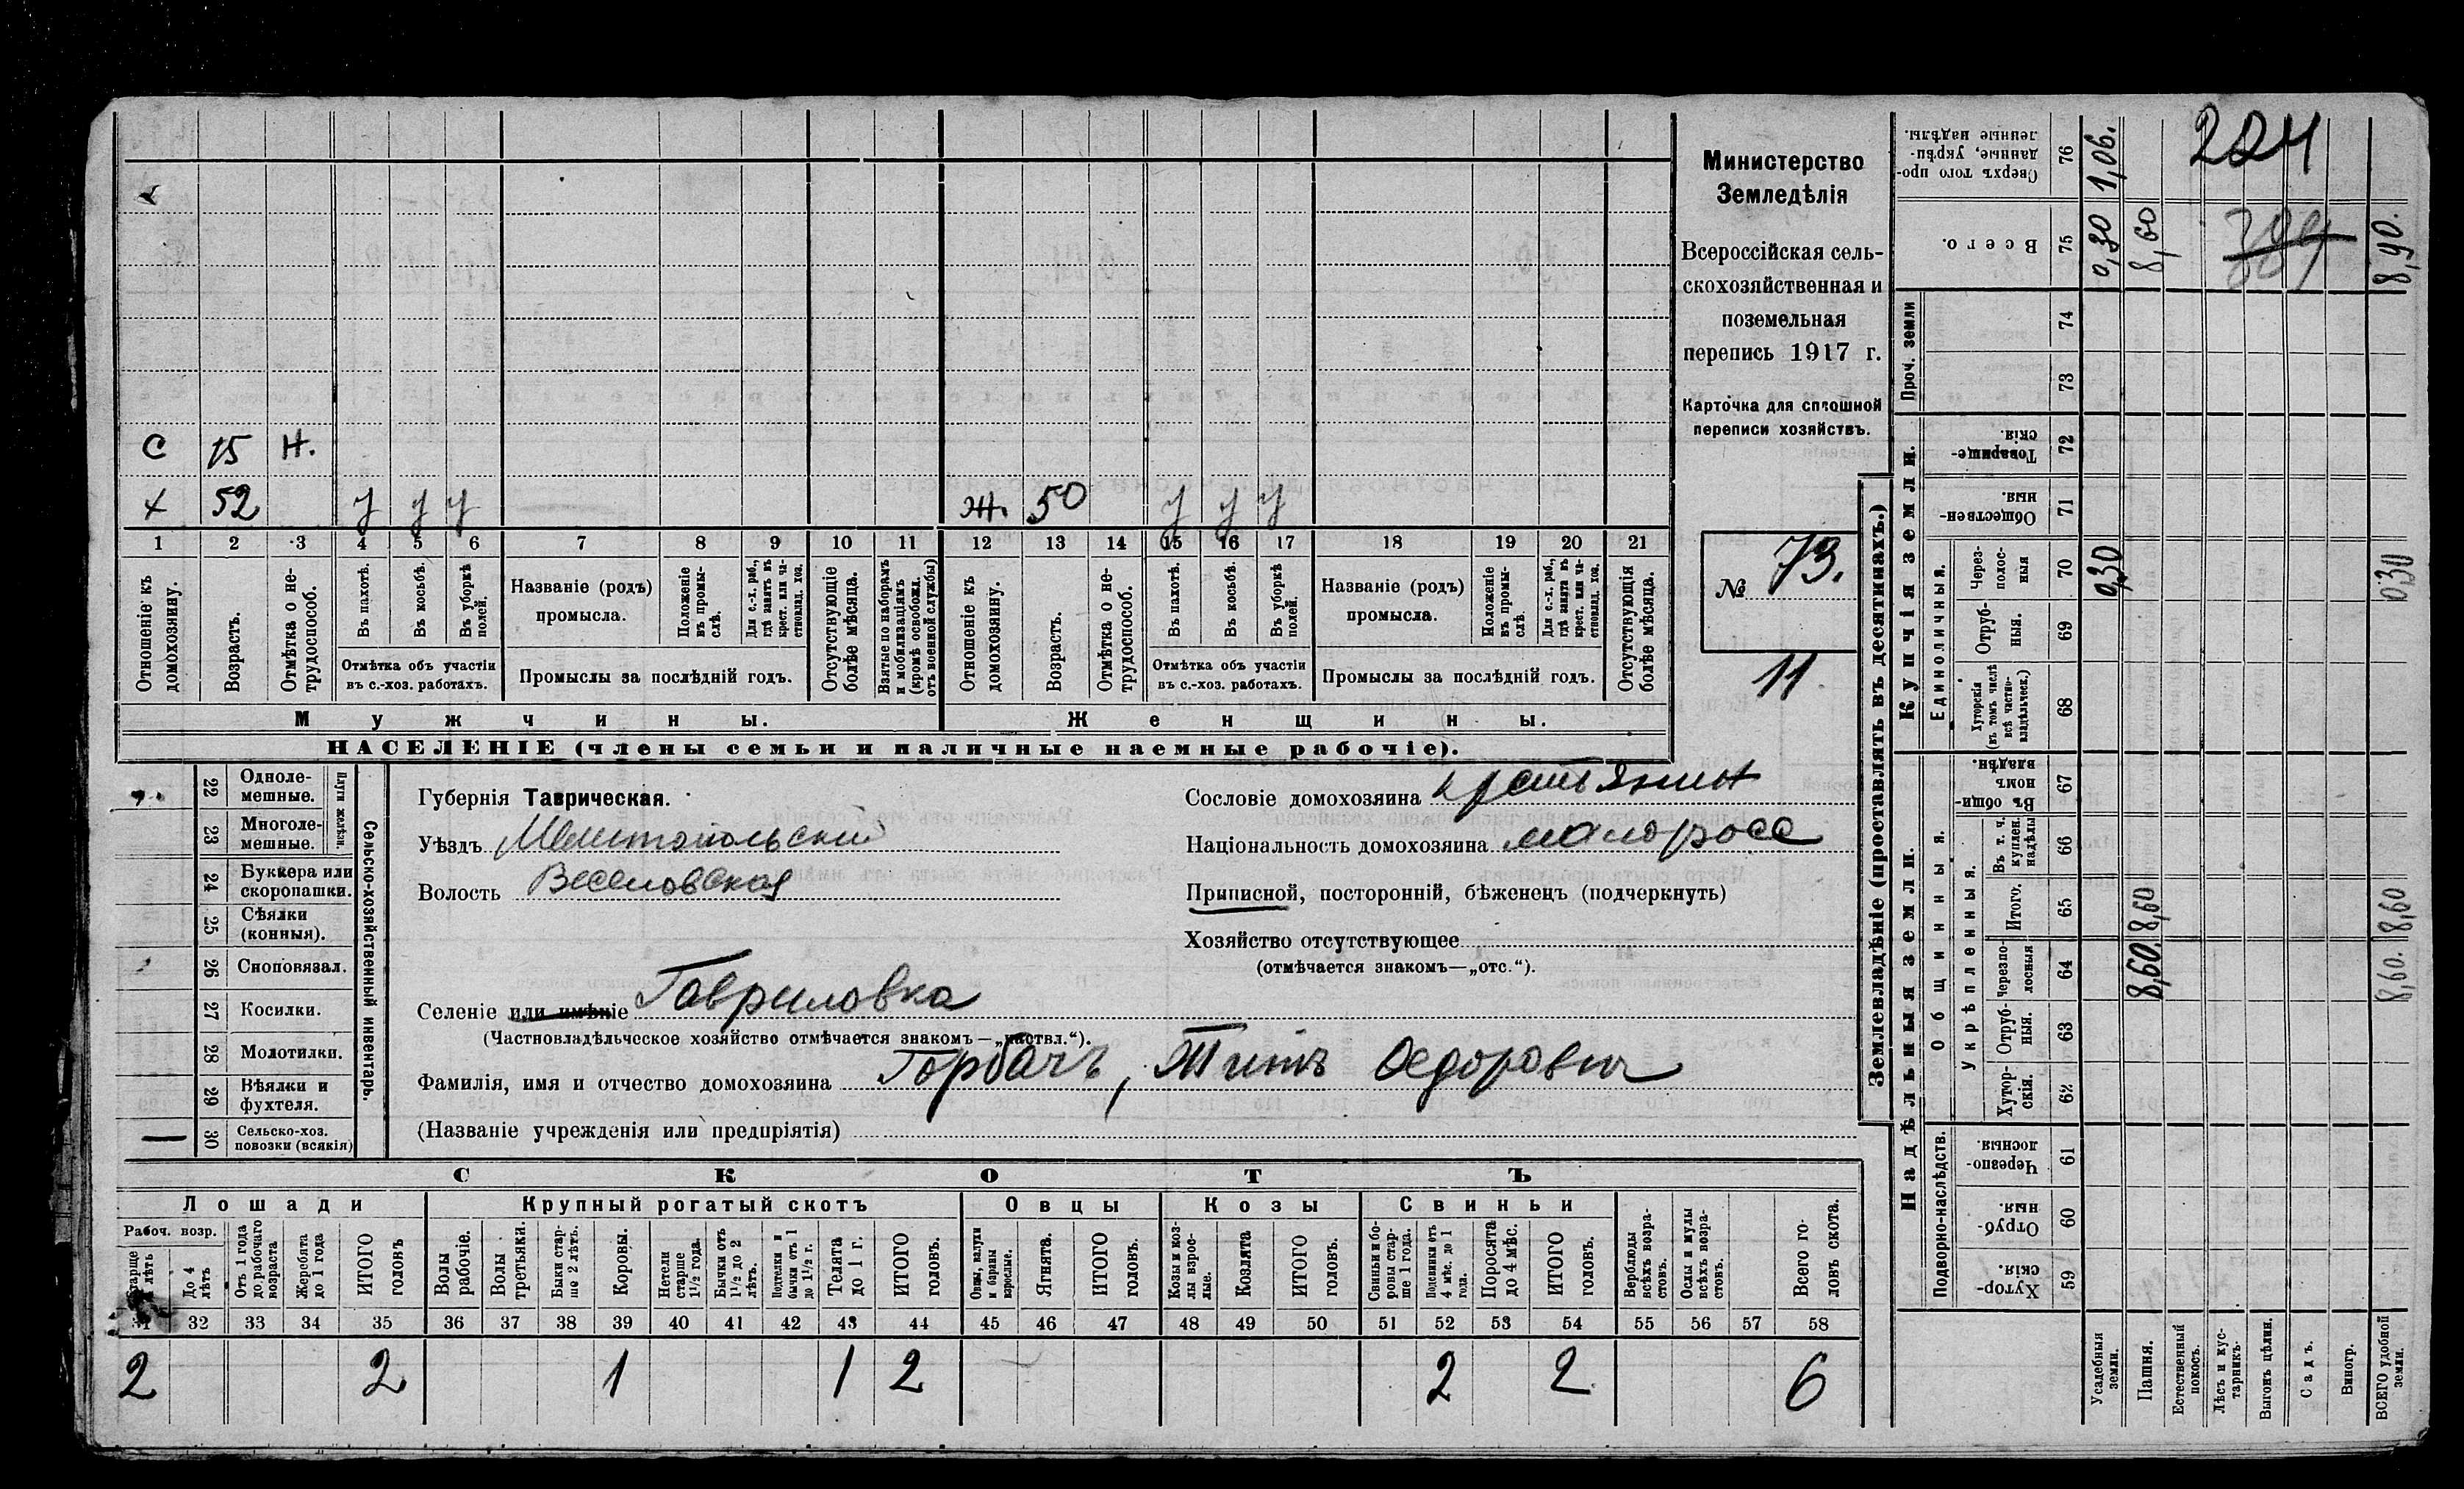 Министерство
Земледѣлія
Всероссійская сель-
скохозяйственная и
поземельная
перепись 1917 г.
Карточка для сплошной
переписи хозяйствъ.
№ 73.
11.
С 15 Н.
х 52 у у у Ж. 50 у у у
1 2 3 4 5 6 7 8 9 10 11 12 13 14 15 16 17 18 19 20 21
Отношеніе къ домохозяину.
Возрастъ.
Отмѣтка о не-трудоспособ.
Въ пахотѣ.
Въ косьбѣ.
Въ уборкѣ полей.
Отмѣтка объ участіи
въ с.-хоз. работахъ.
Названіе (родъ)
промысла.
Положеніе въ промы-слѣ.
Для с.-х. раб., гдѣ занятъ въ крест. или ча-стновлад. хоз.
Промыслы за послѣдній годъ.
Отсутствующіе болѣе мѣсяца.
Взятые по наборамъ и мобилизаціямъ (кромѣ освобожд. отъ военной службы)
Отношеніе къ домохозяину.
Возрастъ.
Отмѣтка о не-трудоспособ.
Въ пахотѣ.
Въ косьбѣ.
Въ уборкѣ полей.
Отмѣтка объ участіи
въ с.-хоз. работахъ.
Названіе (родъ)
промысла.
Положеніе въ промы-слѣ.
Для с.-х. раб., гдѣ занята въ крест. или ча-стновлад. хоз.
Промыслы за послѣдній годъ.
Отсутствующія болѣе мѣсяца.
Мужчины. Женщины.
НАСЕЛЕНІЕ (члены семьи и наличные наемные рабочіе).
22 Одноле-мешные.
23 Многоле-мешные.
Плуги желѣзн.
24 Буккера или скоропашки.
25 Сѣялки (конныя).
26 Сноповязал.
27 Косилки.
28 Молотилки.
29 Вѣялки и фухтеля.
30 Сельско-хоз. повозки (всякія)
—
Сельско-хозяйственный инвентарь.
Губернія Таврическая.
Уѣздъ Мелитопольский
Волость Веселовская
Сословіе домохозяина крестьянин
Національность домохозяина малоросс
Приписной, посторонній, бѣженецъ (подчеркнуть)
Хозяйство отсутствующее
(отмѣчается знакомъ—„отс.“).
Селеніе или имѣніе Гавриловка
(Частновладѣльческое хозяйство отмѣчается знакомъ—„частвл.“).
Фамилія, имя и отчество домохозяина Горбачъ, Титъ Федорович
(Названіе учрежденія или предпріятія)
СКОТЪ
Лошади Крупный рогатый скотъ Овцы Козы Свиньи
Рабоч. возр.
Старше 4 лѣтъ
До 4 лѣтъ
Отъ 1 года до рабочаго возраста
Жеребята до 1 года
ИТОГО головъ
Волы рабочіе.
Волы третьяки.
Быки стар-ше 2 лѣтъ.
Коровы.
Нетели старше 1½ года.
Бычки отъ 1½ до 2 лѣтъ.
Подтелки и бычки отъ 1 до 1½ г.
Телята до 1 г.
ИТОГО головъ.
Овцы, валухи и бараны взрослые.
Ягнята.
ИТОГО головъ.
Козы и коз-лы взрос-лые.
Козлята
ИТОГО головъ.
Свиньи и бо-ровы стар-ше 1 года.
Подсвинки отъ 4 мѣс. до 1 года.
Поросята до 4 мѣс.
ИТОГО головъ.
Верблюды всѣхъ возра-стовъ.
Ослы и мулы всѣхъ возра-стовъ.
Всего го-ловъ скота.
31 32 33 34 35 36 37 38 39 40 41 42 43 44 45 46 47 48 49 50 51 52 53 54 55 56 57 58
2 2 1 1 2 2 2 6
Землевладѣніе (проставлять въ десятинахъ.)
Надѣльныя земли.
Купчія земли.
Подворно-наслѣдств.
Общинныя.
Укрѣпленныя.
Единоличныя.
Проч. земли
Хутор-скія. 59
Отруб-ныя. 60
Черезпо-лосныя. 61
Хутор-скія. 62
Отруб-ныя. 63
Черезпо-лосныя 64
Итого. 65
Въ т. ч. куплен. надѣлы 66
Въ общи-номъ владѣн. 67
Хуторскія (въ томъ числѣ всѣ частно-владѣльческ.) 68
Отруб-ныя. 69
Через-полос-ныя 70
Обществен-ныя. 71
Товарище-скія. 72
73
74
Всего. 75
Сверхъ того про-данные, укрѣп-ленные надѣлы. 76
Усадебныя земли. 0,30 0,30 1,06.
Пашня. 8,60. 8,60 8,60
Естественный покосъ.
Лѣсъ и кус-тарникъ.
Выгонъ цѣлин.
Садъ.
Виногр.
ВСЕГО удобной земли. 8,60. 8,60 0,30 8,90.
224
389